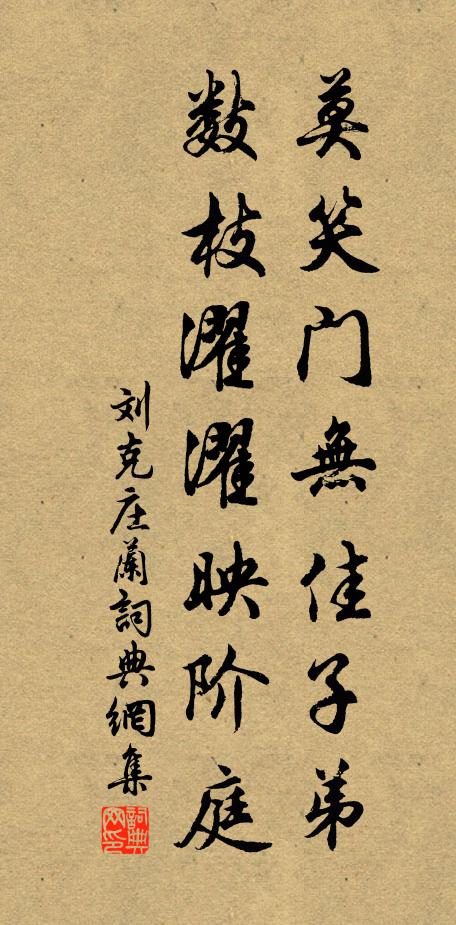 莫笑门無佳子弟
数枝濯濯映阶庭
刘克庄蘭詞典網集
詞典网印